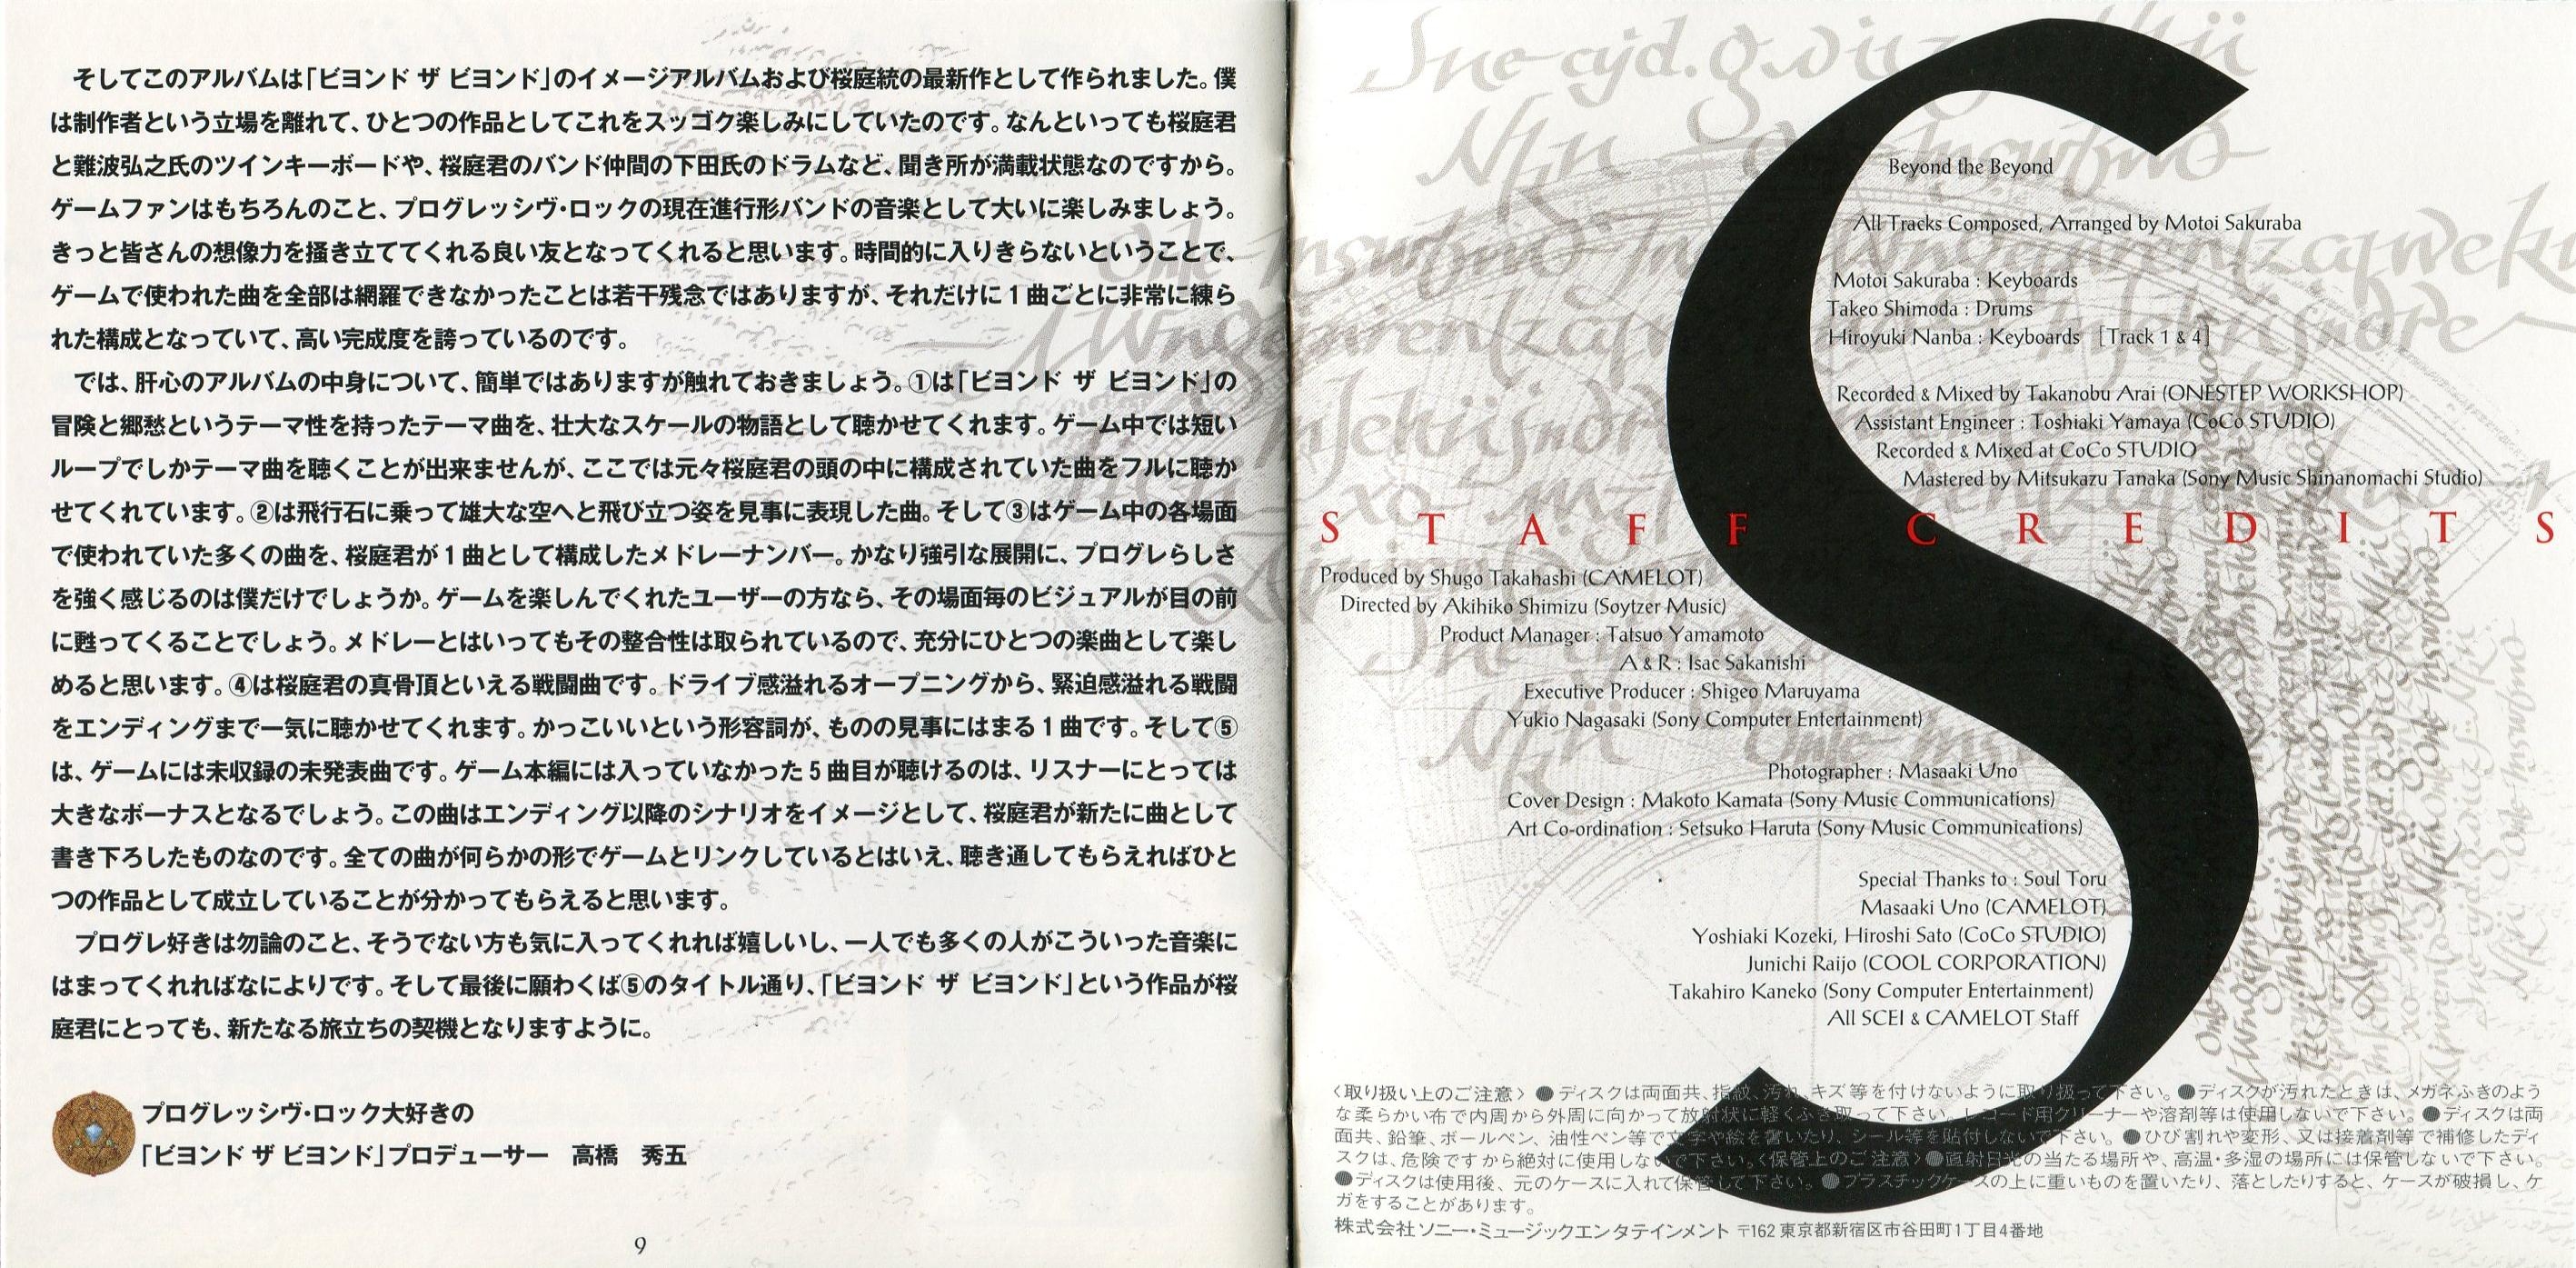 そしてこのアルバムは「ビヨンド ザ ビヨンド」のイメージアルバムおよび桜庭統の最新作として作られました。僕
は制作者という立場を離れて、ひとつの作品としてこれをスッゴク楽しみにしていたのです。なんといっても桜庭君
と難波弘之氏のツインキーボードや、桜庭君のバンド仲間の下田氏のドラムなど、聞き所が満載状態なのですから。
ゲームファンはもちろんのこと、プログレッシヴ・ロックの現在進行形バンドの音楽として大いに楽しみましょう。
きっと皆さんの想像力を掻き立ててくれる良い友となってくれると思います。時間的に入りきらないということで、
ゲームで使われた曲を全部は網羅できなかったことは若干残念ではありますが、それだけに1曲ごとに非常に練ら
れた構成となっていて、高い完成度を誇っているのです。
では、肝心のアルバムの中身について、簡単ではありますが触れておきましょう。①は「ビヨンド ザ ビヨンド」の
冒険と郷愁というテーマ性を持ったテーマ曲を、壮大なスケールの物語として聴かせてくれます。ゲーム中では短い
ループでしかテーマ曲を聴くことが出来ませんが、ここでは元々桜庭君の頭の中に構成されていた曲をフルに聴か
せてくれています。②は飛行石に乗って雄大な空へと飛び立つ姿を見事に表現した曲。そして③はゲーム中の各場面
で使われていた多くの曲を、桜庭君が1曲として構成したメドレーナンバー。かなり強引な展開に、プログレらしさ
を強く感じるのは僕だけでしょうか。ゲームを楽しんでくれたユーザーの方なら、その場面毎のビジュアルが目の前
に甦ってくることでしょう。メドレーとはいってもその整合性は取られているので、充分にひとつの楽曲として楽し
めると思います。④は桜庭君の真骨頂といえる戦闘曲です。ドライブ感溢れるオープニングから、緊迫感溢れる戦闘
をエンディングまで一気に聴かせてくれます。かっこいいという形容詞が、ものの見事にはまる1曲です。そして⑤
は、ゲームには未収録の未発表曲です。ゲーム本編には入っていなかった5曲目が聴けるのは、リスナーにとっては
大きなボーナスとなるでしょう。この曲はエンディング以降のシナリオをイメージとして、桜庭君が新たに曲として
書き下ろしたものなのです。全ての曲が何らかの形でゲームとリンクしているとはいえ、聴き通してもらえればひと
つの作品として成立していることが分かってもらえると思います。
プログレ好きは勿論のこと、そうでない方も気に入ってくれれば嬉しいし、一人でも多くの人がこういった音楽に
はまってくれればなによりです。そして最後に願わくば⑤のタイトル通り、「ビヨンド ザ ビヨンド」という作品が桜
庭君にとっても、新たなる旅立ちの契機となりますように。
プログレッシヴ・ロック大好きの
「ビヨンド ザ ビヨンド」プロデューサー 高橋 秀五
9
Beyond the Beyond
All Tracks Composed, Arranged by Motoi Sakuraba
Motoi Sakuraba : Keyboards
Takeo Shimoda : Drums
Hiroyuki Nanba : Keyboards [Track 1 & 4]
Recorded & Mixed by Takanobu Arai (ONESTEP WORKSHOP)
Assistant Engineer : Toshiaki Yamaya (CoCo STUDIO)
Recorded & Mixed at CoCo STUDIO
Mastered by Mitsukazu Tanaka (Sony Music Shinanomachi Studio)
STAFF CREDITS
Produced by Shugo Takahashi (CAMELOT)
Directed by Akihiko Shimizu (Soytzer Music)
Product Manager : Tatsuo Yamamoto
A & R : Isac Sakanishi
Executive Producer : Shigeo Maruyama
Yukio Nagasaki (Sony Computer Entertainment)
Photographer : Masaaki Uno
Cover Design : Makoto Kamata (Sony Music Communications)
Art Co-ordination : Setsuko Haruta (Sony Music Communications)
Special Thanks to : Soul Toru
Masaaki Uno (CAMELOT)
Yoshiaki Kozeki, Hiroshi Sato (CoCo STUDIO)
Junichi Raijo (COOL CORPORATION)
Takahiro Kaneko (Sony Computer Entertainment)
All SCEI & CAMELOT Staff
〈取り扱い上のご注意〉●ディスクは両面共、指紋、汚れ、キズ等を付けないように取り扱って下さい。●ディスクが汚れたときは、メガネふきのよう
な柔らかい布で内周から外周に向かって放射状に軽くふき取って下さい。レコード用クリーナーや溶剤等は使用しないで下さい。●ディスクは両
面共、鉛筆、ボールペン、油性ペン等で文字や絵を書いたり、シール等を貼付しないで下さい。●ひび割れや変形、又は接着剤等で補修したディ
スクは、危険ですから絶対に使用しないで下さい。〈保管上のご注意〉●直射日光の当たる場所や、高温・多湿の場所には保管しないで下さい。
●ディスクは使用後、元のケースに入れて保管して下さい。●プラスチックケースの上に重いものを置いたり、落としたりすると、ケースが破損し、ケ
ガをすることがあります。
株式会社ソニー・ミュージックエンタテインメント 〒162 東京都新宿区市谷田町1丁目4番地